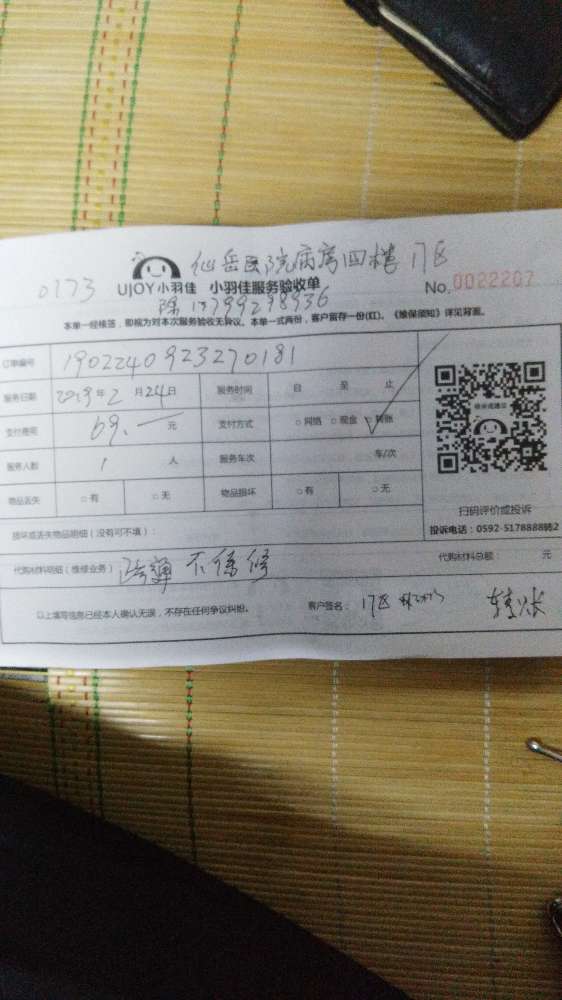 仙岳医院病房四楼17区
0173 UJOY小羽佳 小羽佳服务验收单 No.0022207
陈13799298936
本单一经核签,即视为对本次服务验收无异议。本单一式两份,客户留存一份(红)。《维保须知》详见背面。
订单编号 1902240923270181
服务日期 2019年2月24日 服务时间 自 至 止
支付费用 69.一元 支付方式 ○网络 ○现金 ○转账
服务人数 1 人 服务车次 车/次
物品丢失 ○有 ○无 物品损坏 ○有 ○无
扫码评价或投诉
投诉电话:0592-5178888转2
损坏或丢失物品明细(没有可不填):
代购材料明细(维修业务) 疏通 不保修 代购材料总额: 元
以上填写信息已经本人确认无误,不存在任何争议纠纷。 客户签名: 17区 转账